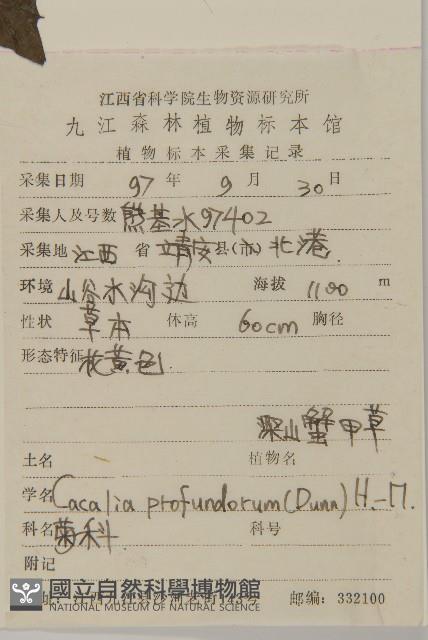 江西省科学院生物资源研究所
九江森林植物标本馆
植物标本采集记录
采集日期 97 年 9 月 30 日
采集人及号数 熊基水97402
采集地 江西 省 靖安 县(市) 北港.
环境 山谷水沟边 海拔 1100 m
性状 草本 体高 60cm 胸径
形态特征 花黄色
深山蟹甲草
土名 植物名
学名 Cacalia profundorum (Dunn) H.-M.
科名 菊科 科号
附记
國立自然科學博物館
NATIONAL MUSEUM OF NATURAL SCIENCE
邮编: 332100